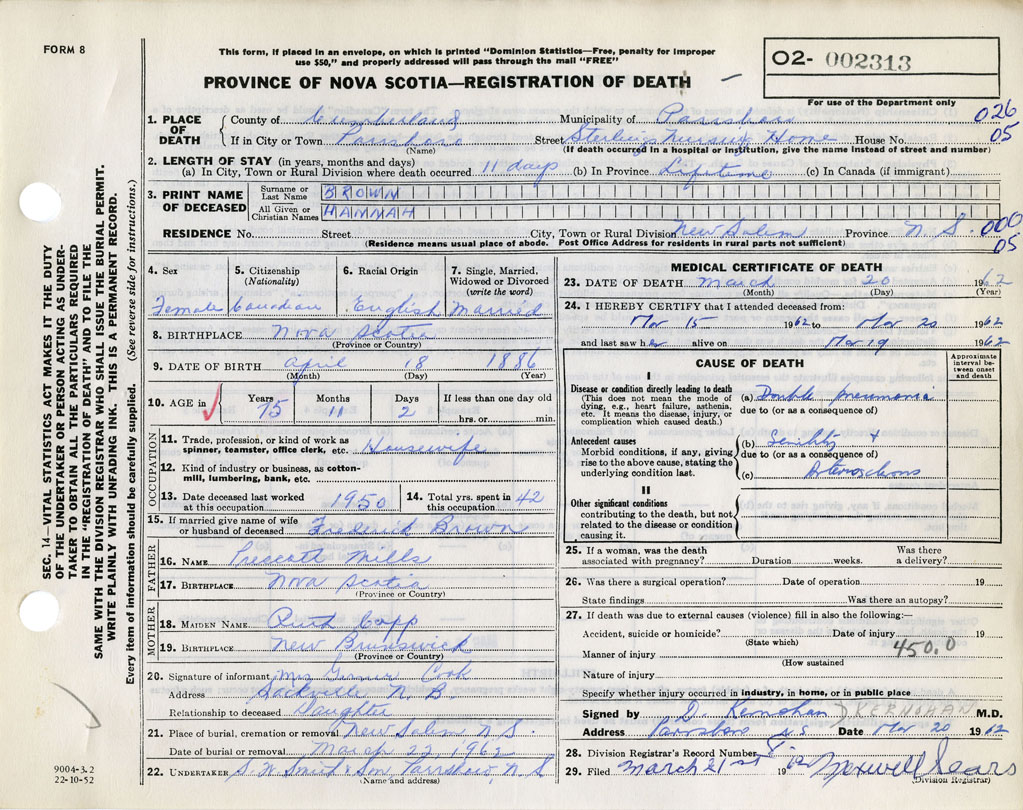 FORM 8
This form, if placed in an envelope, on which is printed "Dominion Statistics—Free, penalty for improper
use $50," and properly addressed will pass through the mail "FREE"
PROVINCE OF NOVA SCOTIA—REGISTRATION OF DEATH
02- 002313
For use of the Department only
026
05
1. PLACE OF DEATH
County of Cumberland Municipality of Parrsboro
If in City or Town Parrsboro Street Sterling Nursing Home House No.
(Name) (If death occurred in a hospital or institution, give the name instead of street and number)
2. LENGTH OF STAY (in years, months and days)
(a) In City, Town or Rural Division where death occurred 11 days (b) In Province Lifetime (c) In Canada (if immigrant)
3. PRINT NAME OF DECEASED
Surname or Last Name BROWN
All Given or Christian Names HANNAH
RESIDENCE No. Street City, Town or Rural Division New Salem Province N. S.
000
05
(Residence means usual place of abode. Post Office Address for residents in rural parts not sufficient)
4. Sex
Female
5. Citizenship (Nationality)
Canadian
6. Racial Origin
English
7. Single, Married, Widowed or Divorced (write the word)
Married
8. BIRTHPLACE Nova Scotia
(Province or Country)
9. DATE OF BIRTH April 18 1886
(Month) (Day) (Year)
10. AGE in Years Months Days If less than one day old
75 11 2 hrs. or min.
OCCUPATION
11. Trade, profession, or kind of work as
spinner, teamster, office clerk, etc. Housewife
12. Kind of industry or business, as cotton-
mill, lumbering, bank, etc.
13. Date deceased last worked
at this occupation 1950
14. Total yrs. spent in
this occupation 42
15. If married give name of wife
or husband of deceased Frederick Brown
FATHER
16. NAME Prescott Mills
17. BIRTHPLACE Nova Scotia
(Province or Country)
MOTHER
18. MAIDEN NAME Ruth Copp
19. BIRTHPLACE New Brunswick
(Province or Country)
20. Signature of informant Mrs Cook
Address Sackville N B
Relationship to deceased Daughter
21. Place of burial, cremation or removal New Salem N. S.
Date of burial or removal March 22, 1962
22. UNDERTAKER S W Smith & Son Parrsboro, N S
(Name and address)
MEDICAL CERTIFICATE OF DEATH
23. DATE OF DEATH March 20 1962
(Month) (Day) (Year)
24. I HEREBY CERTIFY that I attended deceased from:
Mar 15 1962 to Mar 20 1962
and last saw her alive on Mar 19 1962
CAUSE OF DEATH
Approximate interval between onset and death
I
Disease or condition directly leading to death
(This does not mean the mode of
dying, e.g., heart failure, asthenia,
etc. It means the disease, injury, or
complication which caused death.)
(a) Double pneumonia
due to (or as a consequence of)
Antecedent causes
Morbid conditions, if any, giving
rise to the above cause, stating the
underlying condition last.
(b) Senility +
due to (or as a consequence of)
(c)
II
Other significant conditions
contributing to the death, but not
related to the disease or condition
causing it.
25. If a woman, was the death Was there
associated with pregnancy? Duration weeks. a delivery?
26. Was there a surgical operation? Date of operation 19
State findings Was there an autopsy?
27. If death was due to external causes (violence) fill in also the following:—
Accident, suicide or homicide? Date of injury 19
(State which)
450.0
Manner of injury
(How sustained
Nature of injury
Specify whether injury occurred in industry, in home, or in public place
Signed by D. Kernohan KERNOHAN M.D.
Address Parrsboro N.S Date Mar 20 1962
28. Division Registrar's Record Number
29. Filed March 21st 1962 Maxwell Sears
(Division Registrar)
SEC. 14—VITAL STATISTICS ACT MAKES IT THE DUTY
OF THE UNDERTAKER OR PERSON ACTING AS UNDER-
TAKER TO OBTAIN ALL THE PARTICULARS REQUIRED
IN THE "REGISTRATION OF DEATH" AND TO FILE THE
SAME WITH THE DIVISION REGISTRAR WHO SHALL ISSUE THE BURIAL PERMIT.
WRITE PLAINLY WITH UNFADING INK. THIS IS A PERMANENT RECORD.
Every item of information should be carefully supplied. (See reverse side for instructions.)
9004-3.2
22-10-52